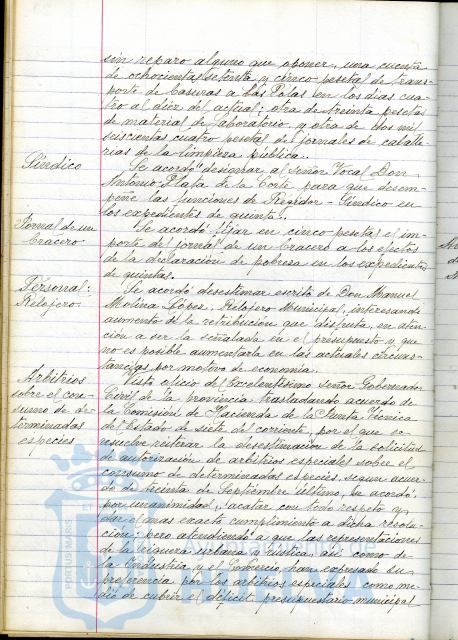 sin reparo alguno que oponer, una cuenta
de ochocientas setenta y cinco pesetas de trans-
porte de basuras a Las Rolas en los dias cua-
tro al diez del actual; otra de treinta pesetas
de material de Laboratorio, y otra de dos mil
seiscientas cuatro pesetas de jornales de caballe-
rias de la limpieza pública.
Síndico
Se acordó designar al Señor Vocal Don
Antonio Plaza de la Corte para que desem-
peñe las funciones de Regidor-Síndico en
los expedientes de quintas.
Jornal de un
bracero
Se acordó fijar en cinco pesetas el im-
porte del jornal de un bracero a los efectos
de la declaración de pobreza en los expedientes
de quintas.
Personal:
Relojero
Se acordó desestimar escrito de Don Manuel
Molina López, Relojero Municipal, interesando
aumento de la retribución que disfruta, en aten-
ción a ser la señalada en el presupuesto y que
no es posible aumentarla en las actuales circuns-
tancias por motivo de economía.
Arbitrios
sobre el con-
sumo de de-
terminadas
especies
Visto oficio del Excelentísimo Señor Gobernador
Civil de la provincia trasladando acuerdo de
la Comisión de Hacienda de la Junta Técnica
del Estado de siete del corriente, por el que se
resuelve reiterar la desestimación de la solicitud
de autorización de arbitrios especiales sobre el
consumo de determinadas especies, segun acuer-
do de treinta de Septiembre último, se acordó,
por unanimidad, acatar con todo respeto y
dar el mas exacto cumplimiento a dicha resolu-
ción; pero atendiendo a que las representaciones
de la riqueza urbana y rústica, asi como de
la Industria y el Comercio, han expresado su
preferencia por los arbitrios especiales como me-
dio de cubrir el déficit presupuestario municipal